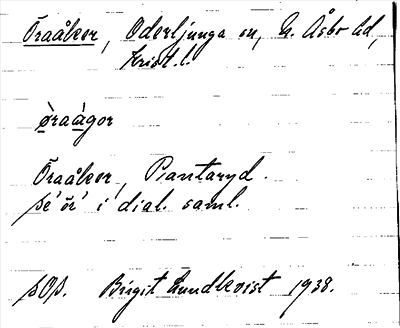 Öraåker, Oderljunga sn, N. Åsbo hd,
Krist. l.
ö̀raågor
Öraåker, Pantaryd.
se 'ör' i dial. saml.
SOS. Birgit Lundkvist 1938.